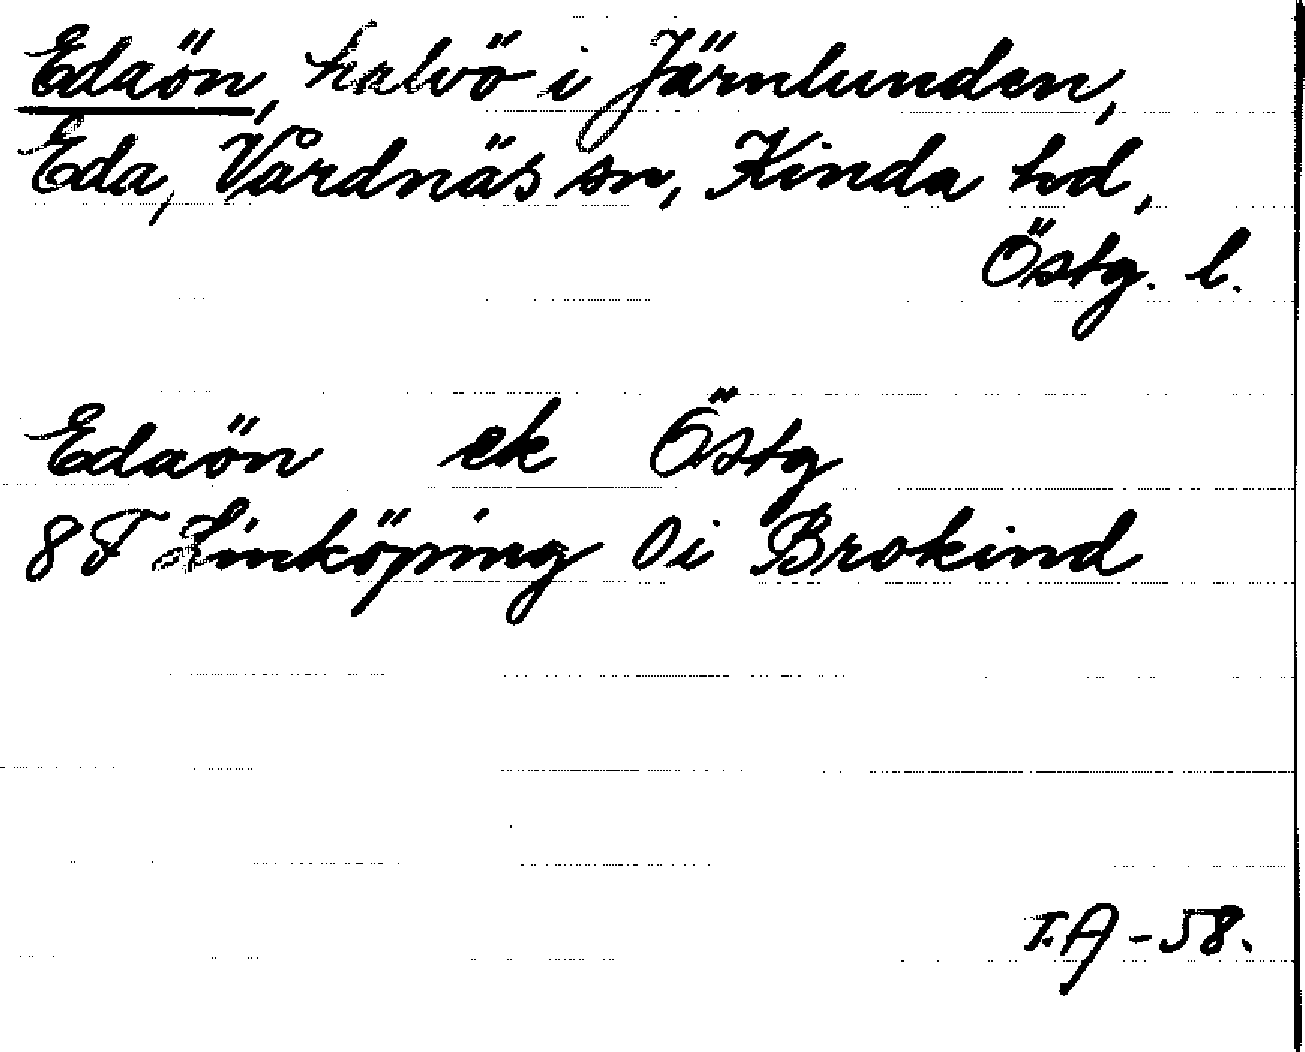 Edaön, halvö i Järnlunden,
Eda, Vårdnäs sn, Kinda hd,
Östg. l.
Edaön ek Östg
8F Linköping Oi Brokind
T.A -58.